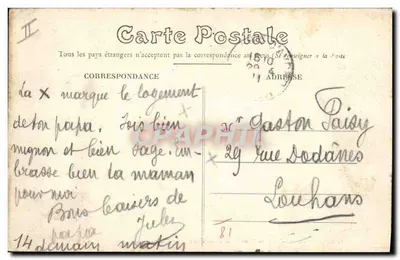 II
Carte Postale
Tous les pays étrangers n'acceptent pas la correspondance au
à la Poste
CORRESPONDANCE
ADRESSE
La X marque le logement
de ton papa. Sois bien
mignon et bien sage. em-
brasse bien ta maman
pour moi
Bons baisers de
papa Jules
14 demain matin
Mr Gaston Paisy
29 rue Dodânes
Louhans
81